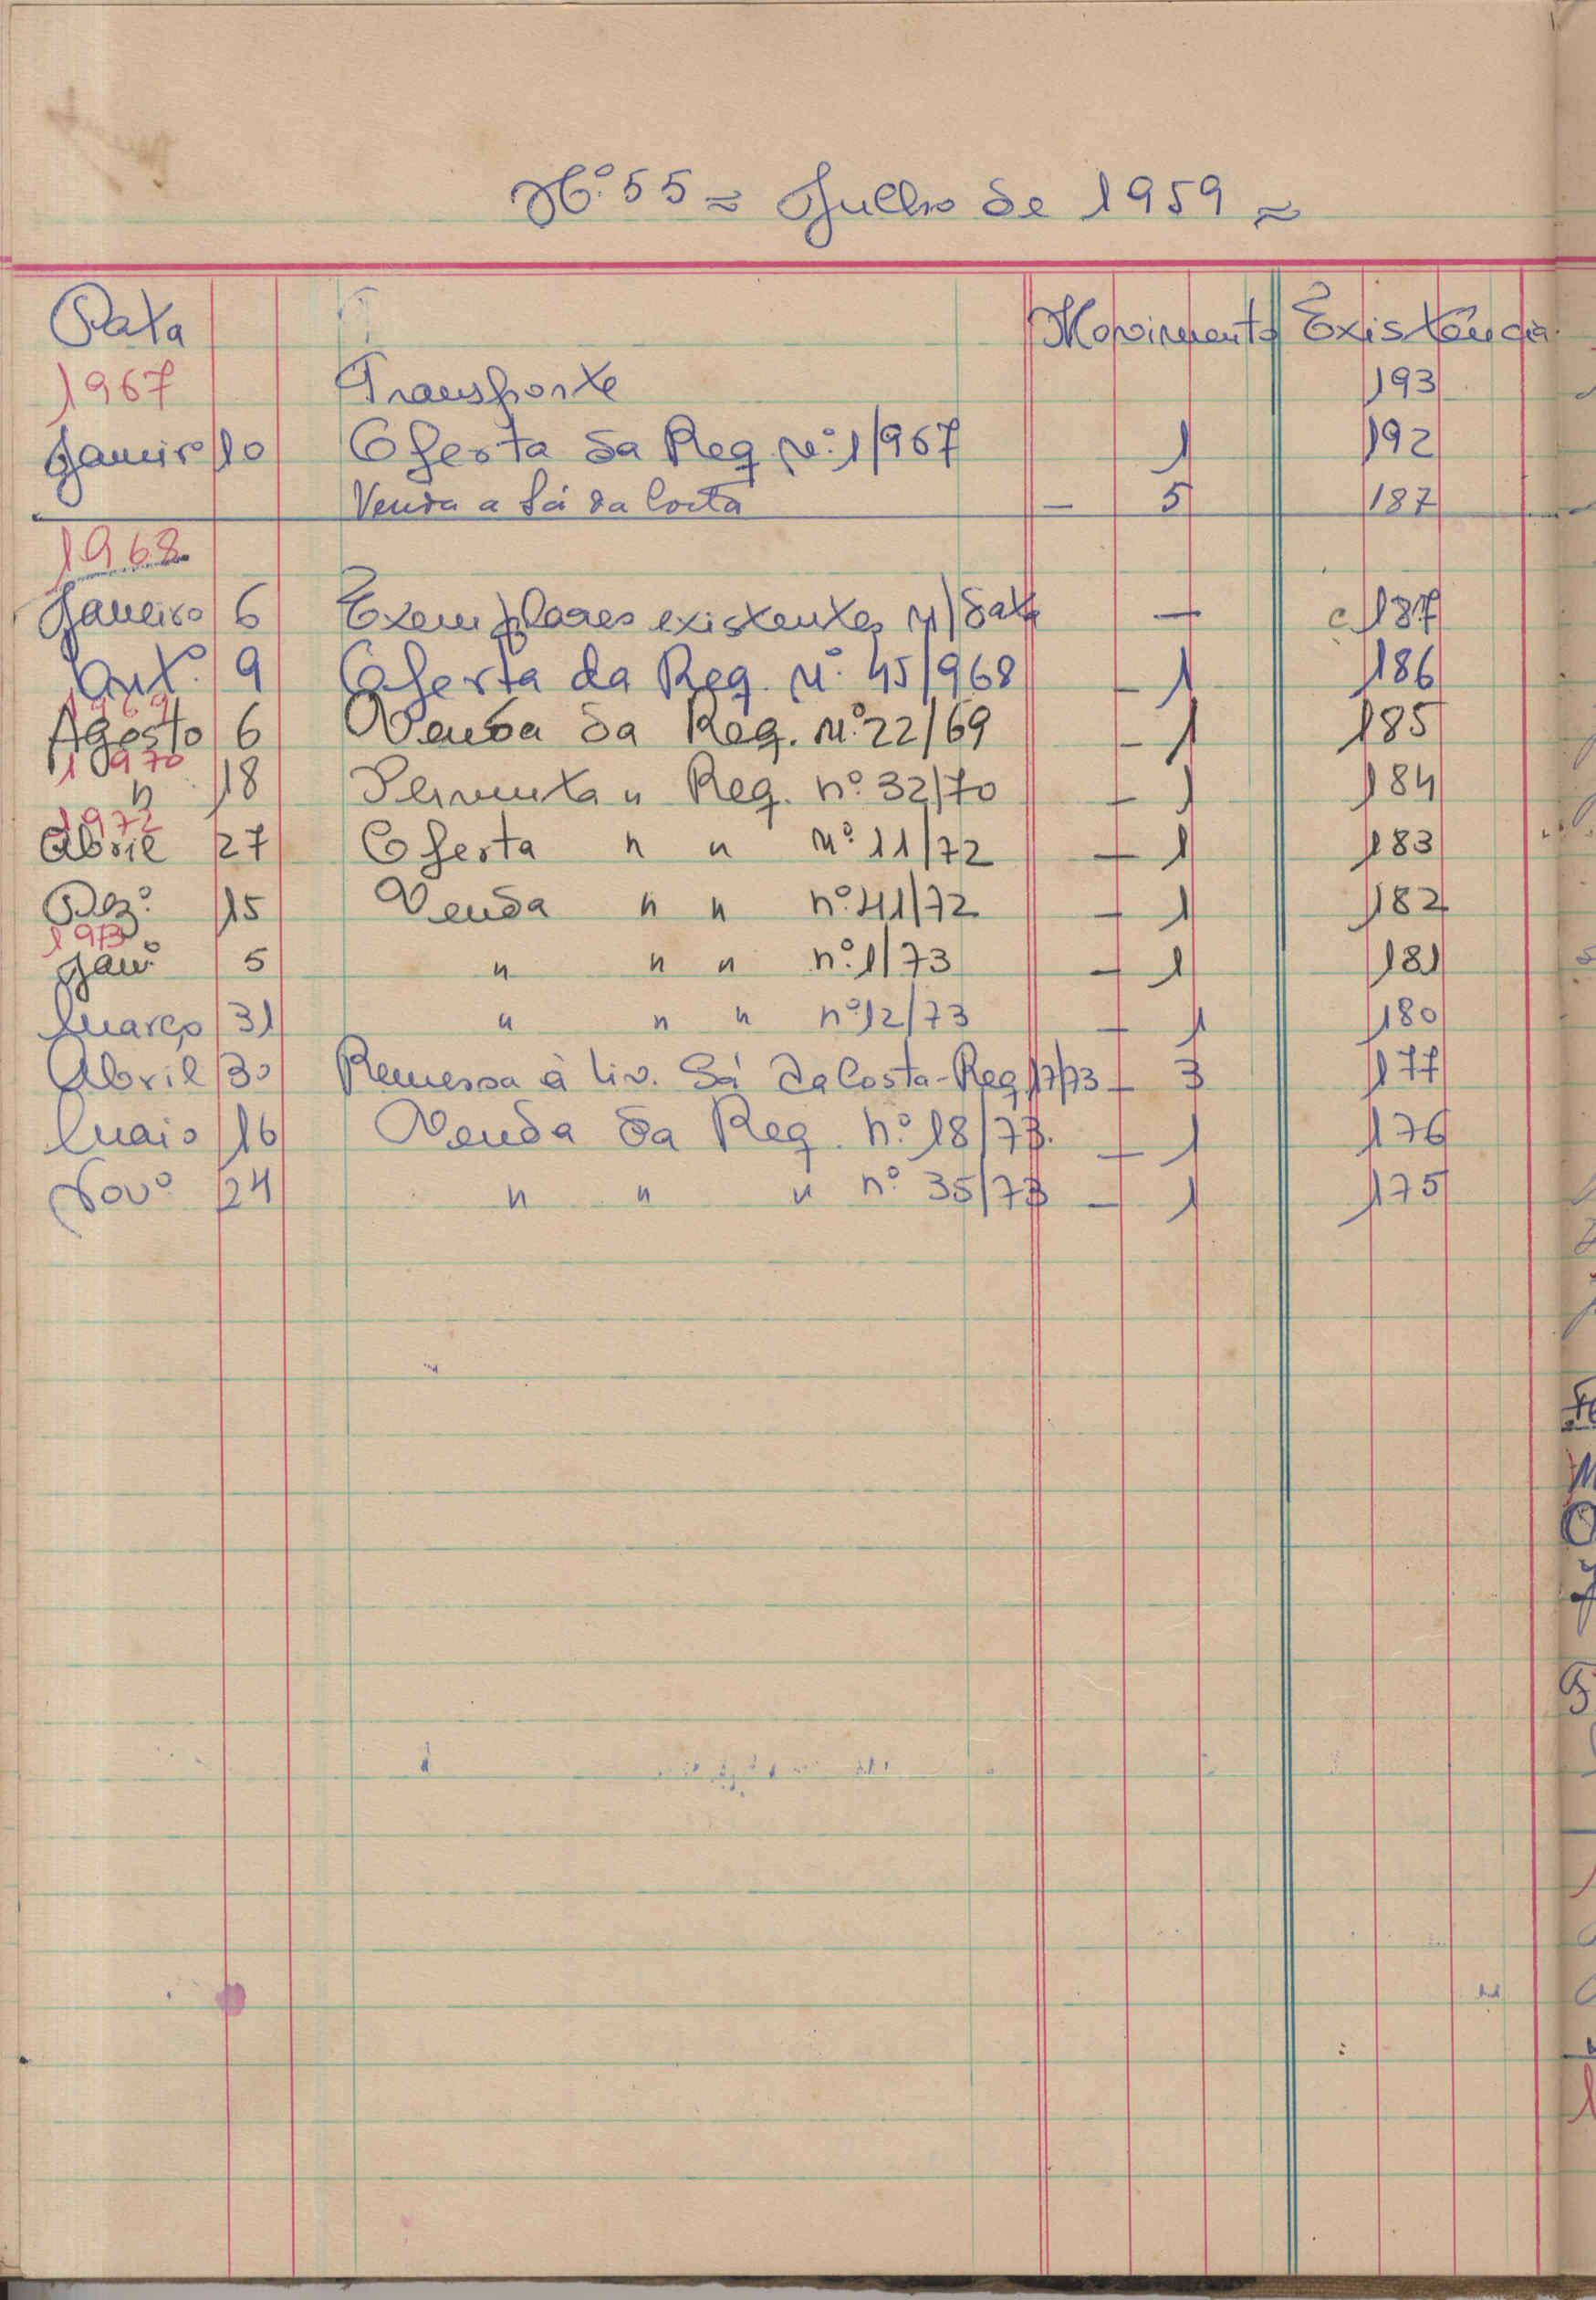 Nº 55 = Julho de 1959 =
Data Movimento Existência
1967 Transporte 193
Janeiro 10 Oferta da Req. nº 1/967 1 192
Venda a Sá da Costa — 5 187
1968
Janeiro 6 Exemplares existentes n/data — 187
Outº. 9 Oferta da Req. nº 45/968 — 1 186
1969
Agosto 6 Venda da Req. nº 22/69 — 1 185
1970
" 18 Permuta " Req. nº 32/70 — 1 184
1972
Abril 27 Oferta " " nº 11/72 — 1 183
Dezº. 15 Venda " " nº 41/72 — 1 182
1973
Janº. 5 " " " nº 1/73 — 1 181
Março 31 " " " nº 12/73 — 1 180
Abril 30 Remessa à Liv. Sá da Costa - Req 17/73 — 3 177
Maio 16 Venda da Req. nº 18/73. — 1 176
Novº 24 " " " nº 35/73 — 1 175